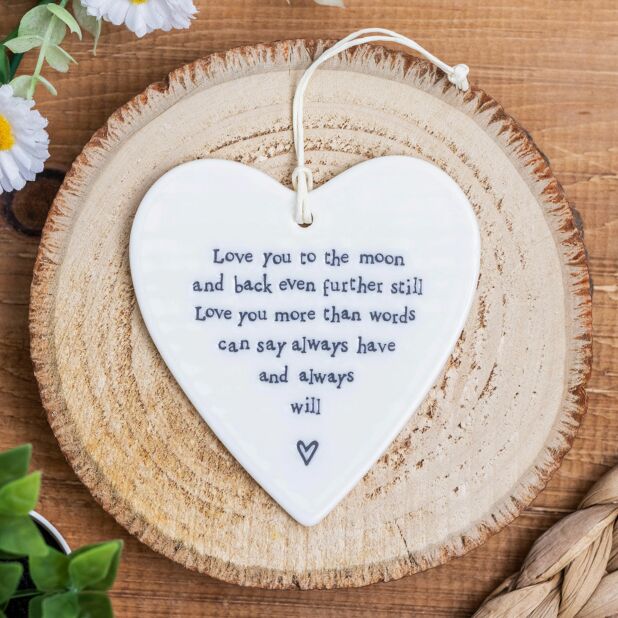 Love you to the moon
and back even further still
Love you more than words
can say always have
and always
will